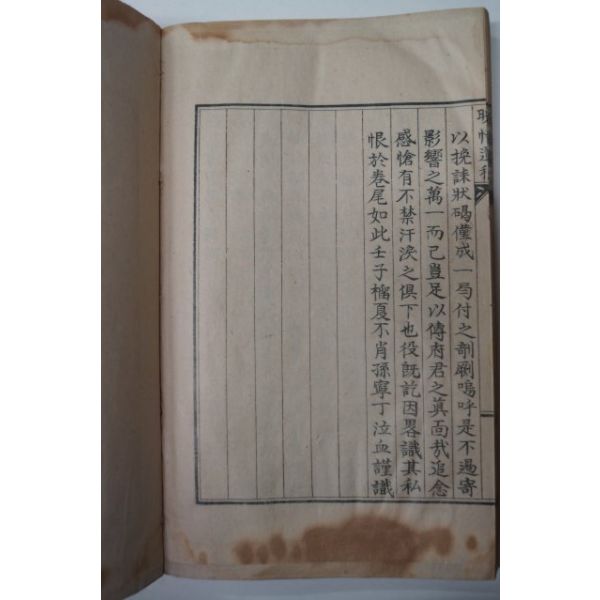 遺稿
以挽誄狀碣僅成一局付之剞劂嗚呼是不過寄
影響之萬一而已豈足以傳府君之眞面哉追念
感愴有不禁汗淚之俱下也役旣訖因畧識其私
恨於卷尾如此壬子榴夏不肖孫寧丁泣血謹識